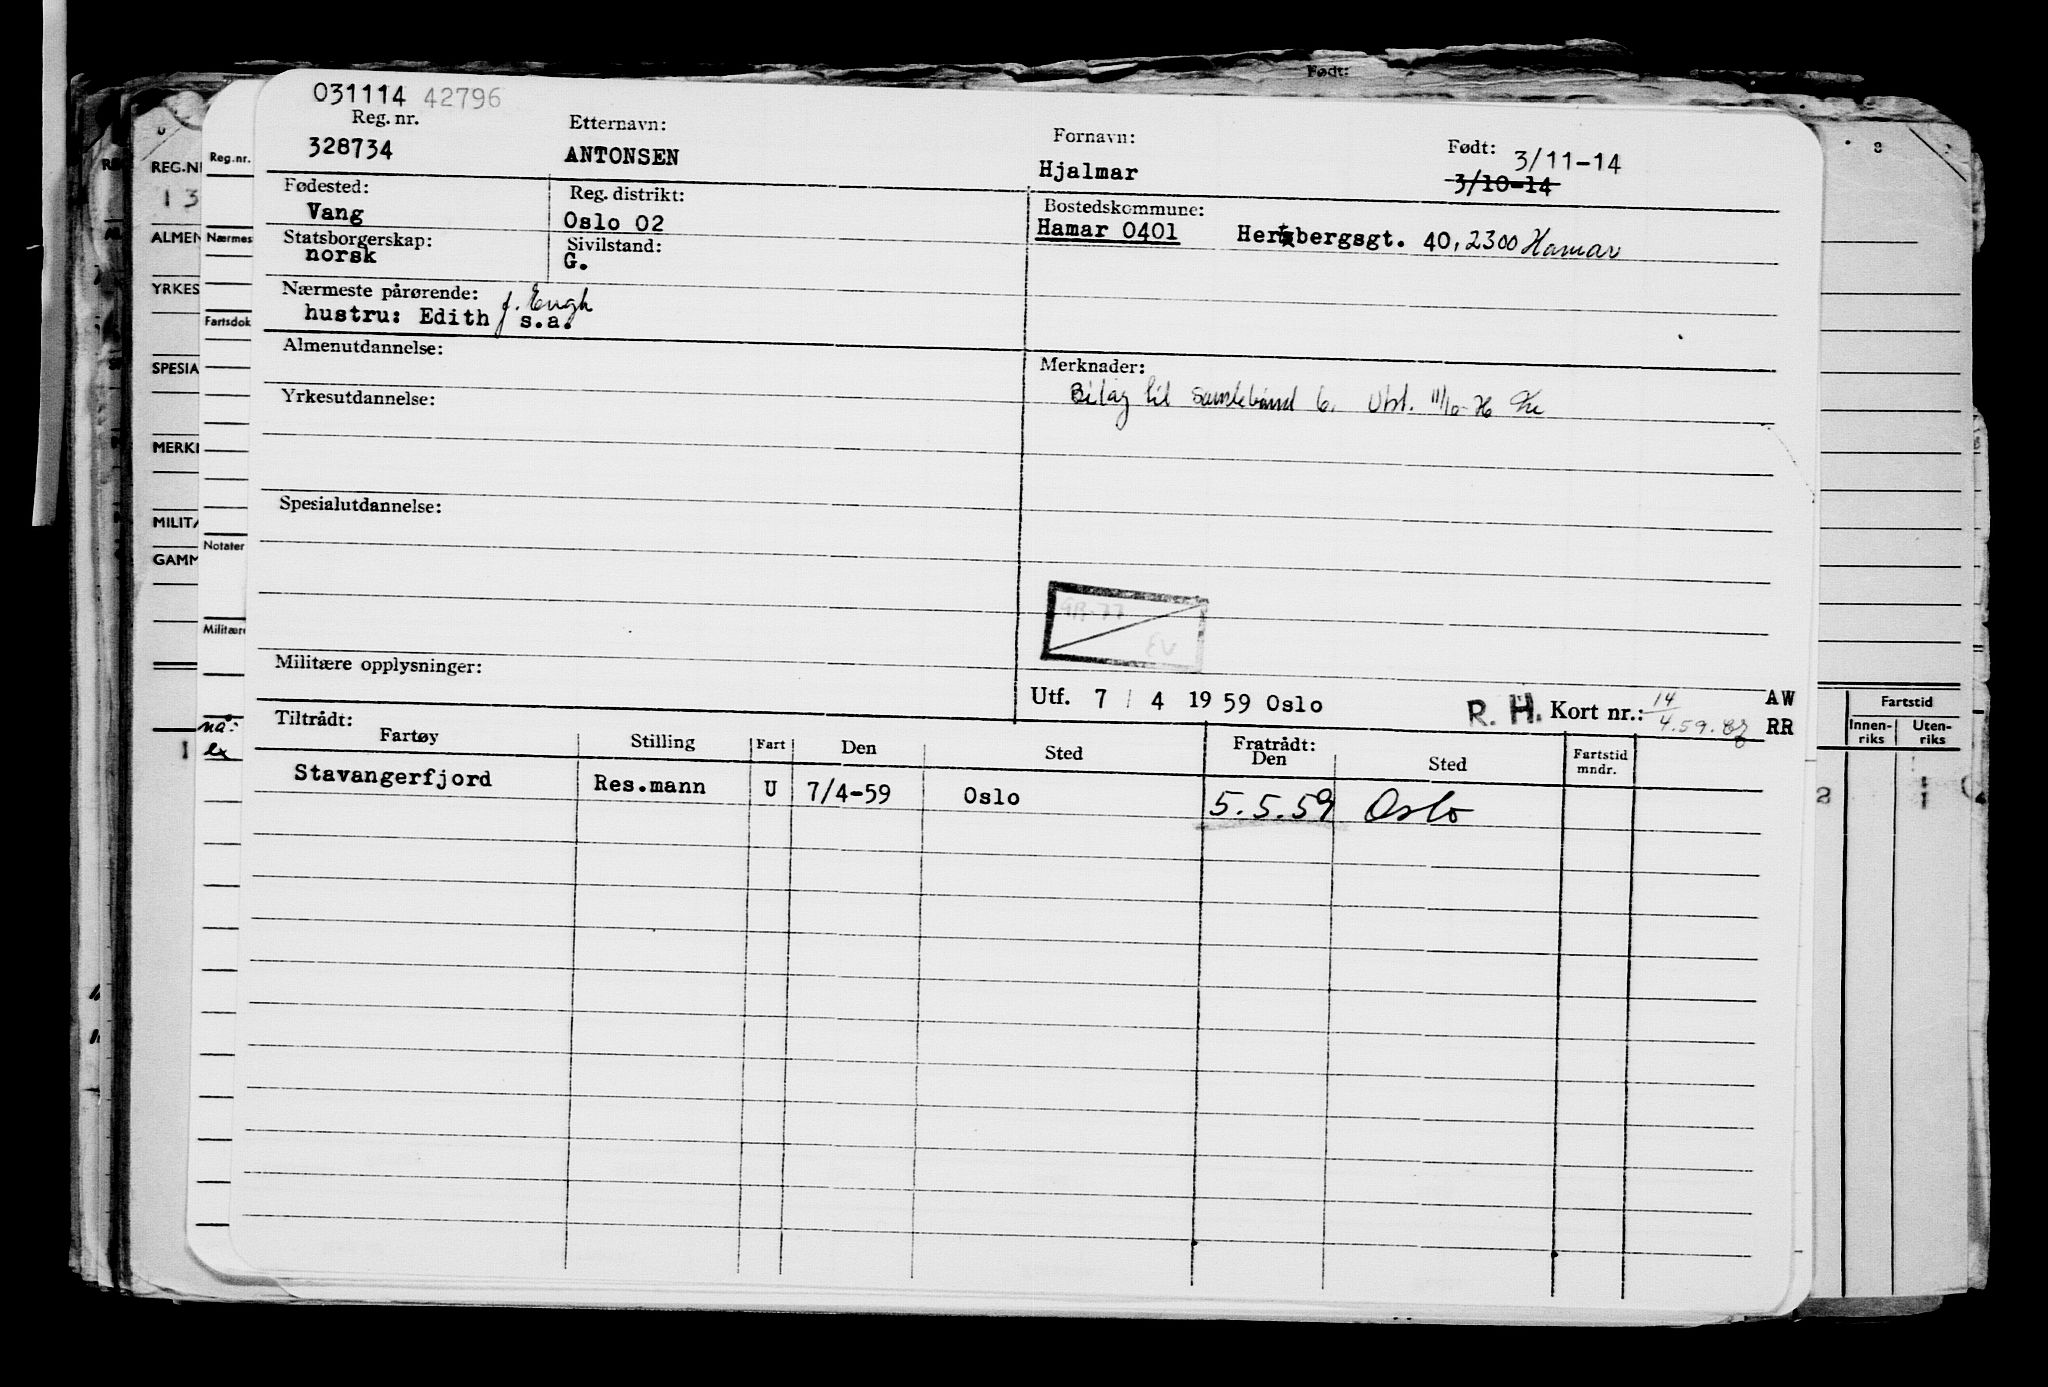 Født:
031114 42796
Reg. nr.
328734
Etternavn:
ANTONSEN
Fornavn:
Hjalmar
Født: 3/11-14
3/10-14
Fødested:
Vang
Reg. distrikt:
Oslo 02
Bostedskommune:
Hamar 0401
bergsgt. 40, 2300 Hamar
Statsborgerskap:
norsk
Sivilstand:
G.
Nærmeste pårørende: f. Engh
hustru: Edith s.a.
Almenutdannelse:
Merknader:
Bilag til samlebånd 6. Utst. 11/10-76
Yrkesutdannelse:
Spesialutdannelse:
EV
Militære opplysninger:
Utf. 7 / 4 1959 Oslo
R. H. Kort nr.: 14/4.59.
AW
RR
Tiltrådt:
Fartøy Stilling Fart Den Sted Fratrådt: Den Sted Fartstid mndr.
Stavangerfjord Res.mann U 7/4-59 Oslo 5.5.59 Oslo
REG.N
13
ALMEN
YRKES
SPESIA
MERK
MILIT
GAMM
Reg.nr.
Nærmes
Fartsdok
Notater
Militære
Fartstid
Innen-riks
Uten-riks
8
2